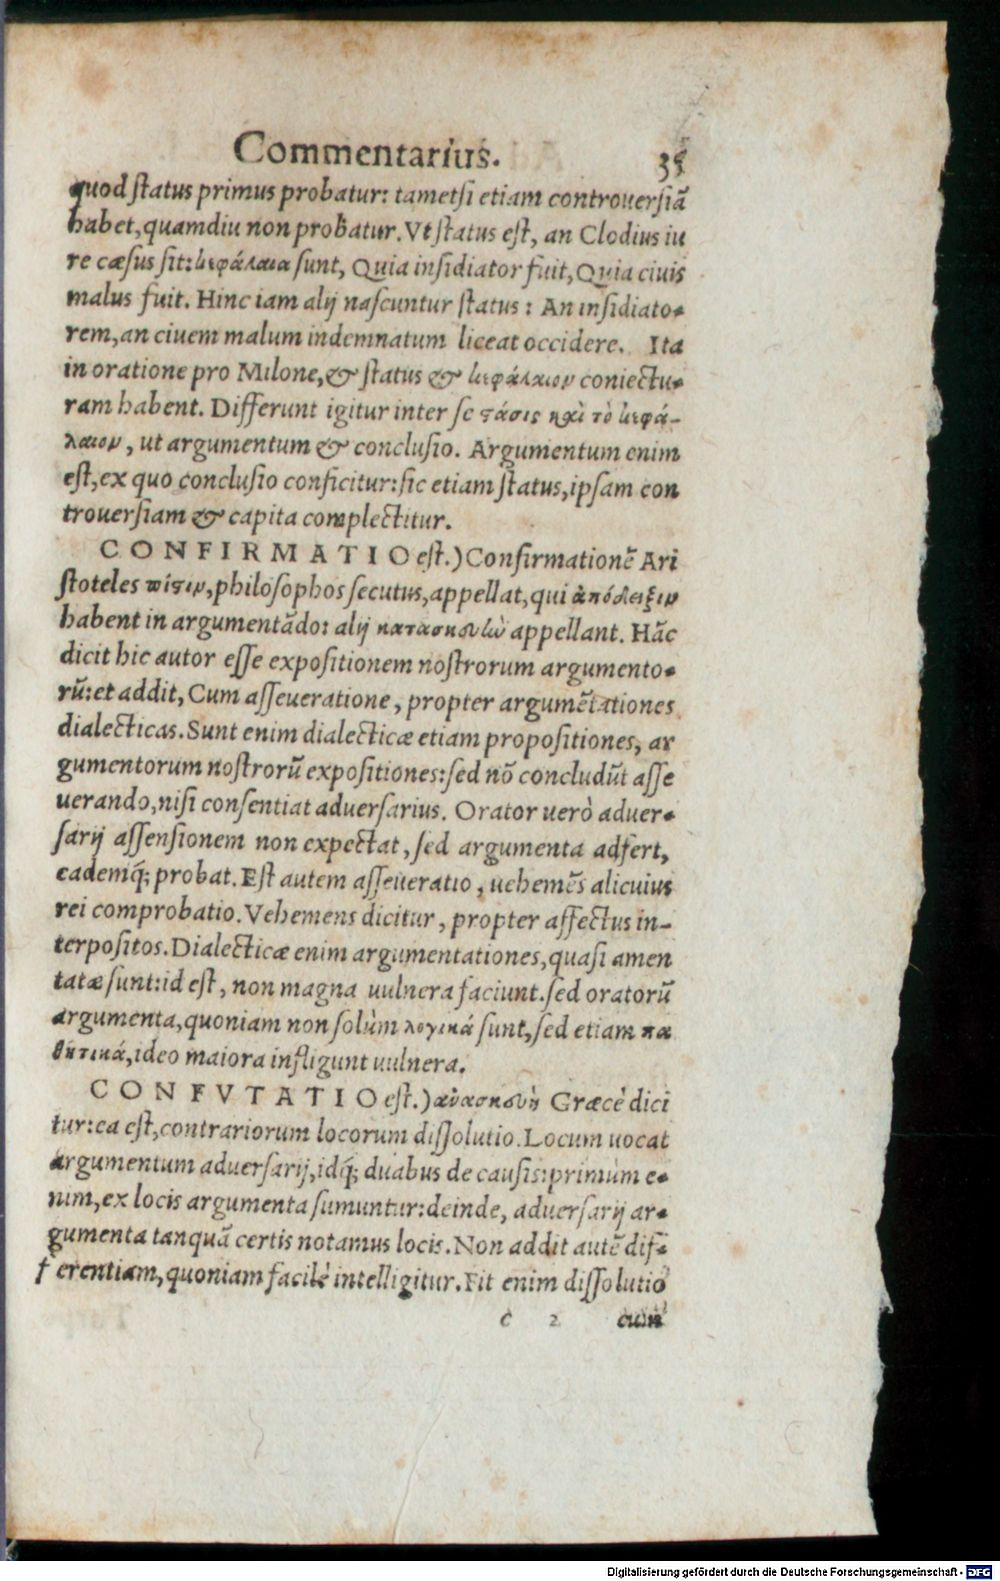 Commentarius. 35
quod status primus probatur: tametsi etiam controuersiã
habet, quamdiu non probatur. Vt status est, an Clodius iu
re cæsus sit: κεφάλαια sunt, Quia insidiator fuit, Quia ciuis
malus fuit. Hinc iam alij nascuntur status: An insidiato-
rem, an ciuem malum indemnatum liceat occidere. Ita
in oratione pro Milone, & status & κεφάλαιον coniectu-
ram habent. Differunt igitur inter se στάσις καὶ τὸ κεφά-
λαιον, ut argumentum & conclusio. Argumentum enim
est, ex quo conclusio conficitur: sic etiam status, ipsam con
trouersiam & capita complectitur.
CONFIRMATIO est.) Confirmationẽ Ari
stoteles πίστιν, philosophos secutus, appellat, qui ἀπόδειξιν
habent in argumentãdo: alij κατασκευὼ appellant. Hãc
dicit hic autor esse expositionem nostrorum argumento-
rũ: et addit, Cum asseueratione, propter argumẽtationes
dialecticas. Sunt enim dialecticæ etiam propositiones, ar
gumentorum nostrorũ expositiones: sed nõ concludũt asse
uerando, nisi consentiat aduersarius. Orator uerò aduer-
sarij assensionem non expectat, sed argumenta adfert,
eademq́; probat. Est autem asseueratio, uehemẽs alicuius
rei comprobatio. Vehemens dicitur, propter affectus in-
terpositos. Dialecticæ enim argumentationes, quasi amen
tatæ sunt: id est, non magna uulnera faciunt. sed oratorũ
argumenta, quoniam non solùm λογικά sunt, sed etiam πα
θητικά, ideo maiora infligunt uulnera.
CONFVTATIO est.) ἀνασκευὴ Græcè dici
tur: ea est, contrariorum locorum dissolutio. Locum uocat
argumentum aduersarij, idq́; duabus de causis: primùm e-
nim, ex locis argumenta sumuntur: deinde, aduersarij ar-
gumenta tanquã certis notamus locis. Non addit autẽ dif-
f erentiam, quoniam facilè intelligitur. Fit enim dissolutio
c 2 cum
Digitalisierung gefördert durch die Deutsche Forschungsgemeinschaft - DFG